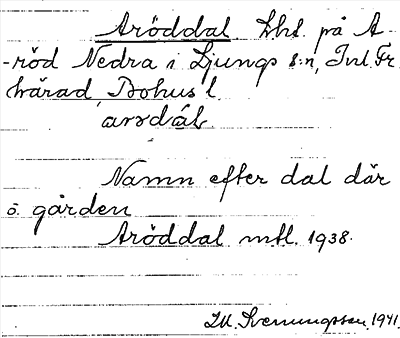 Aröddal Lht. på A-
-röd Nedra i Ljungs s:n, Inl. Fr.
härad, Bohus l.
Namn efter dal där
ö. gården
Aröddal mtl. 1938.
Svenungsson 1941